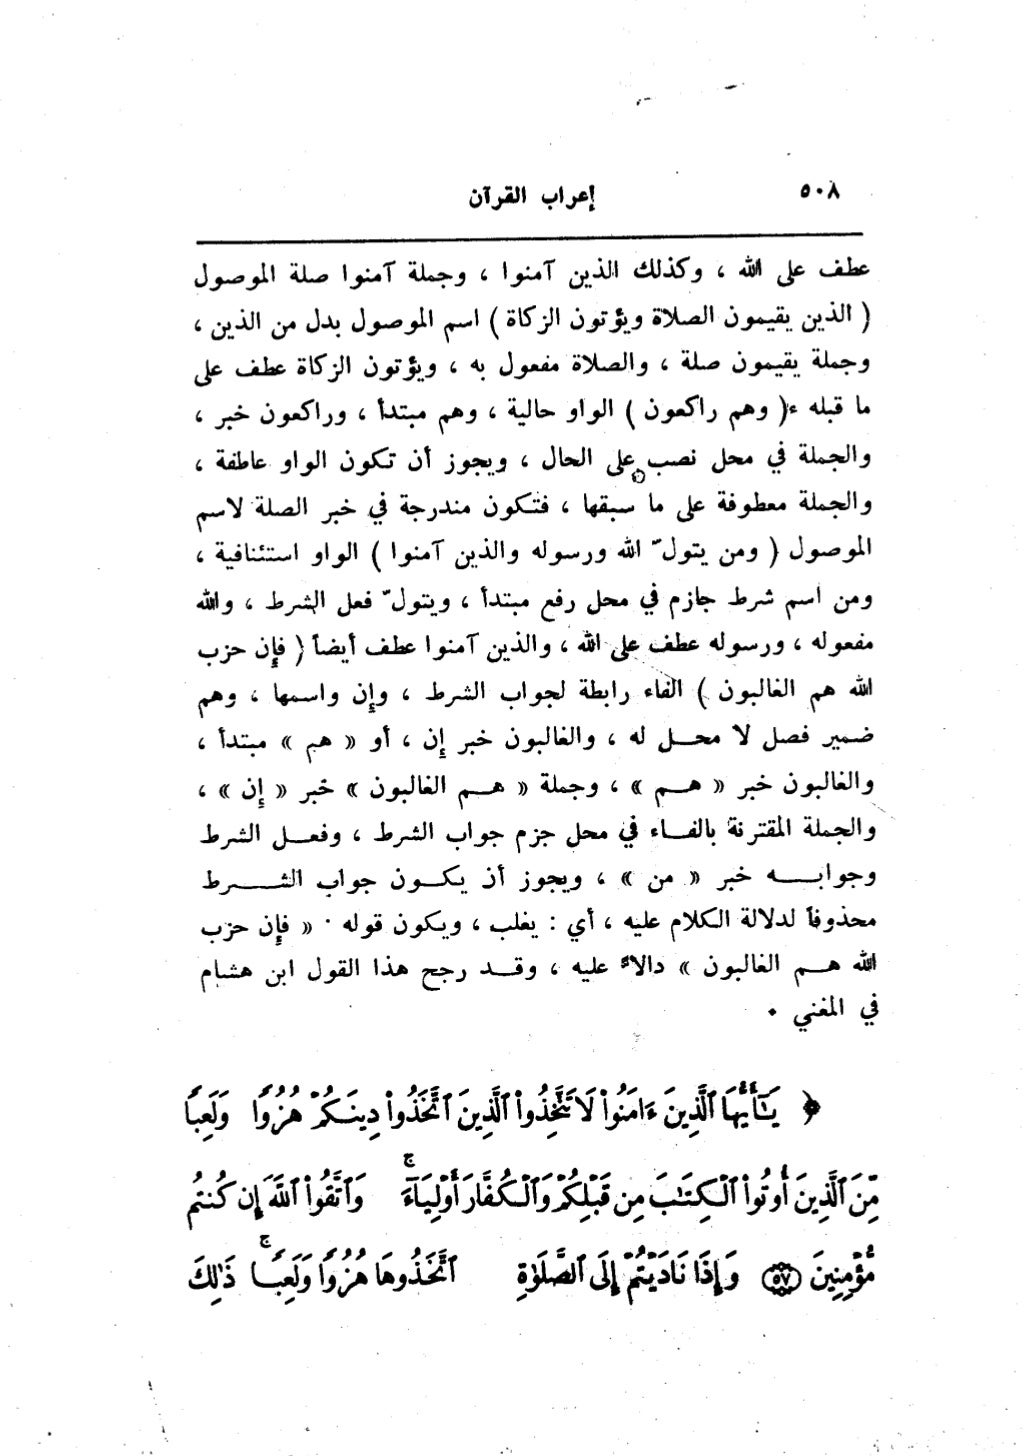 ٥٠٨
إعراب القرآن
عطف على الله ، وكذلك الذين آمنوا ، وجملة آمنوا صلة الموصول
( الذين يقيمون الصلاة ويؤتون الزكاة ) اسم الموصول بدل من الذين ،
وجملة يقيمون صلة ، والصلاة مفعول به ، ويؤتون الزكاة عطف على
ما قبله ، ( وهم راكعون ) الواو حالية ، وهم مبتدأ ، وراكعون خبر ،
والجملة في محل نصب على الحال ، ويجوز أن تكون الواو عاطفة ،
والجملة معطوفة على ما سبقها ، فتكون مندرجة في خبر الصلة لاسم
الموصول ( ومن يتولّ الله ورسوله والذين آمنوا ) الواو استئنافية ،
ومن اسم شرط جازم في محل رفع مبتدأ ، ويتولّ فعل الشرط ، والله
مفعوله ، ورسوله عطف على الله ، والذين آمنوا عطف أيضاً ( فإن حزب
الله هم الغالبون ) الفاء رابطة لجواب الشرط ، وإن واسمها ، وهم
ضمير فصل لا محل له ، والغالبون خبر إن ، أو « هم » مبتدأ ،
والغالبون خبر « هم » ، وجملة « هم الغالبون » خبر « إن » ،
والجملة المقترنة بالفاء في محل جزم جواب الشرط ، وفعل الشرط
وجوابه خبر « من » ، ويجوز أن يكون جواب الشرط
محذوفاً لدلالة الكلام عليه ، أي : يغلب ، ويكون قوله . « فإن حزب
الله هم الغالبون » دالاً عليه ، وقد رجح هذا القول ابن هشام
في المغني .
﴿ يَـٰٓأَيُّهَا ٱلَّذِينَ ءَامَنُواْ لَا تَتَّخِذُواْ ٱلَّذِينَ ٱتَّخَذُواْ دِينَكُمْ هُزُوًا وَلَعِبًا
مِّنَ ٱلَّذِينَ أُوتُواْ ٱلْكِتَـٰبَ مِن قَبْلِكُمْ وَٱلْكُفَّارَ أَوْلِيَآءَ ۚ وَٱتَّقُواْ ٱللَّهَ إِن كُنتُم
مُّؤْمِنِينَ ٥٧ وَإِذَا نَادَيْتُمْ إِلَى ٱلصَّلَوٰةِ ٱتَّخَذُوهَا هُزُوًا وَلَعِبًا ۚ ذَٰلِكَ